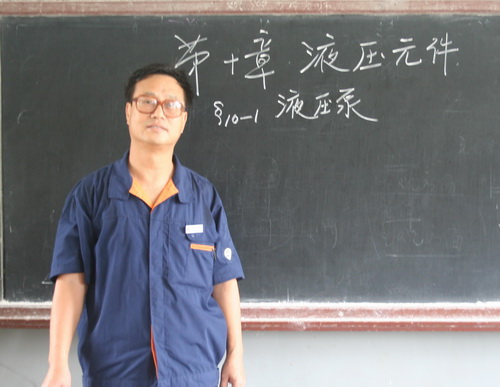 第十章 液压元件
§10-1 液压泵